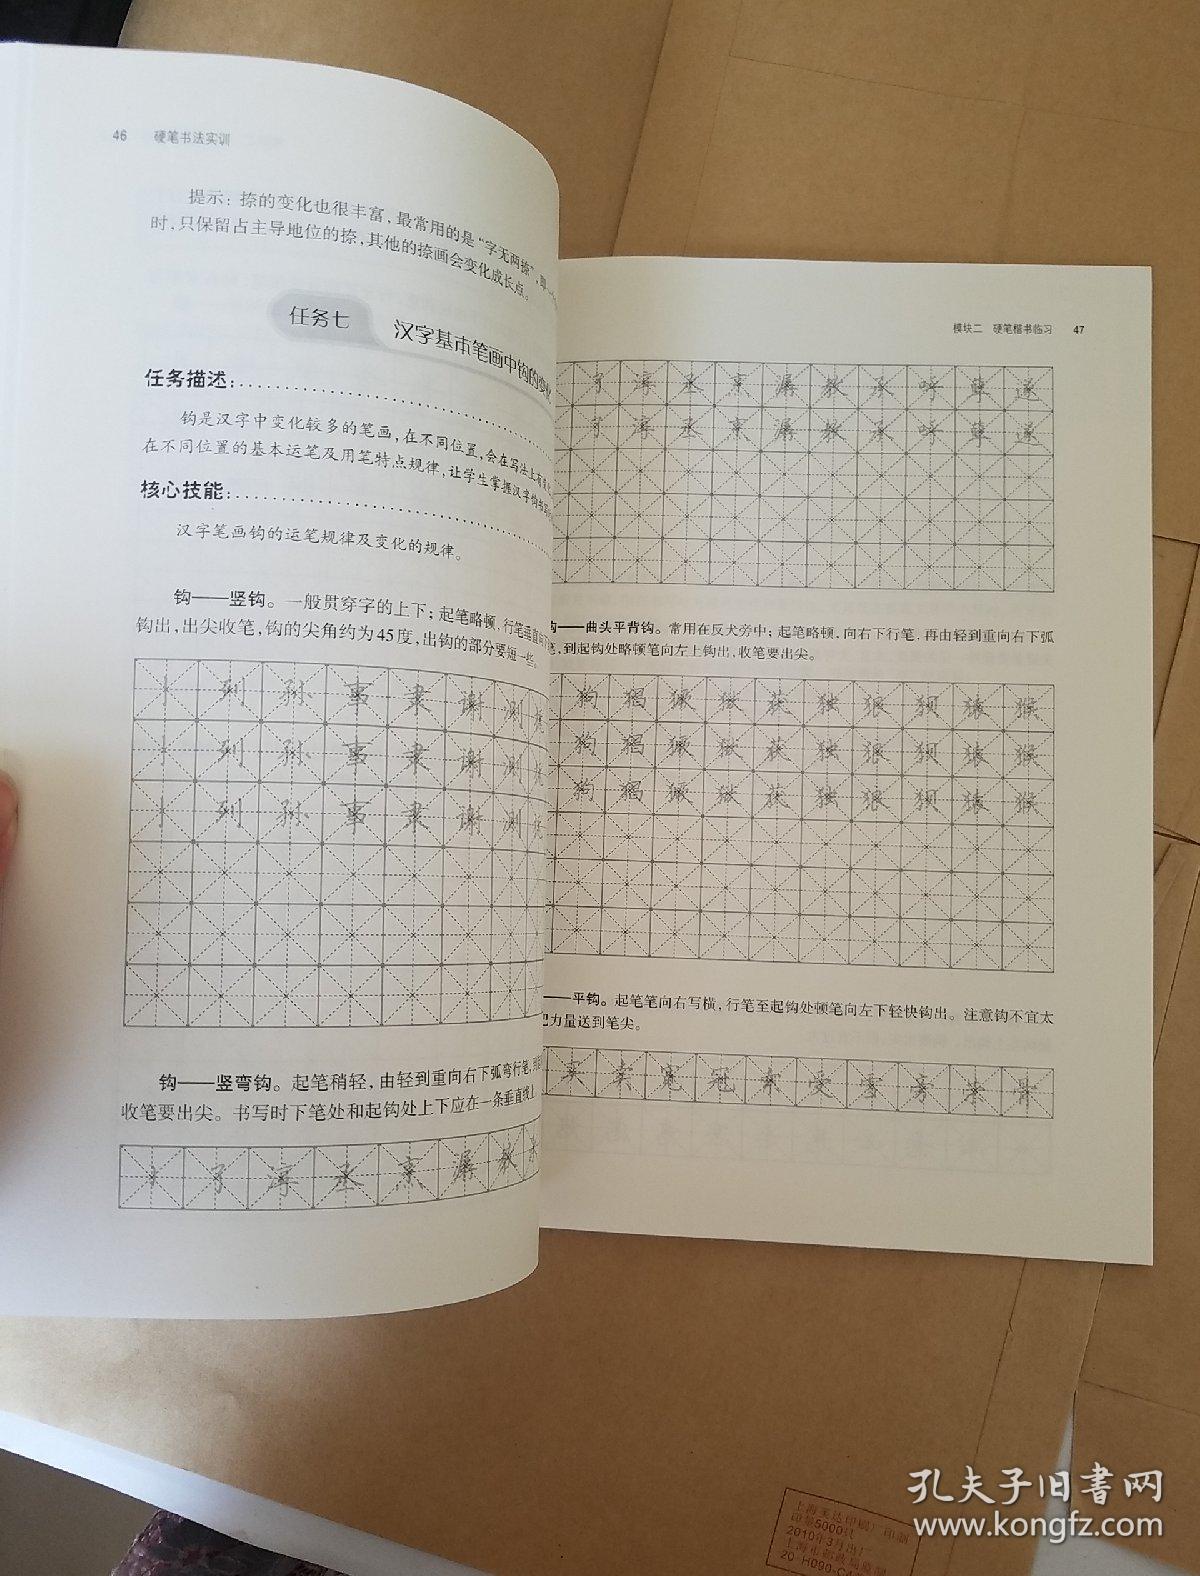 46 硬笔书法实训
提示：捺的变化也很丰富，最常用的是“字无两捺”，即一个
时，只保留占主导地位的捺，其他的捺画会变化成长点。
任务七 汉字基本笔画中钩的变化
任务描述：
钩是汉字中变化较多的笔画，在不同位置，会在写法上有
在不同位置的基本运笔及用笔特点规律，让学生掌握汉字钩
核心技能：
汉字笔画钩的运笔规律及变化的规律。
钩——竖钩。一般贯穿字的上下；起笔略顿，行笔垂直
钩出，出尖收笔，钩的尖角约为45度，出钩的部分要短一些。
亅 列 孙 事 隶 谢 测
亅 列 孙 事 隶 谢 测
亅 列 孙 事 隶 谢 测
钩——竖弯钩。起笔稍轻，由轻到重向右下弧弯行笔，
收笔要出尖。书写时下笔处和起钩处上下应在一条垂直线上
了 淳 丞 烹 潺 教
模块二 硬笔楷书临习 47
了 淳 丞 烹 潺 教 承 哼 草 遂
了 淳 丞 烹 潺 教 承 哼 草 遂
钩——曲头平背钩。常用在反犬旁中；起笔略顿，向右下行笔，再由轻到重向右下弧
笔，到起钩处略顿笔向左上钩出，收笔要出尖。
狗 猖 獗 狱 获 独 狼 狈 猿 猴
狗 猖 獗 狱 获 独 狼 狈 猿 猴
狗 猖 獗 狱 获 独 狼 狈 猿 猴
——平钩。起笔笔向右写横，行笔至起钩处顿笔向左下轻快钩出。注意钩不宜太
把力量送到笔尖。
买 卖 宽 冠 索 受 雪 旁 骨
上海美达印刷厂印制
印量5000只
2010年3月出厂
上海市邮政局监制
孔夫子旧书网
www.kongfz.com